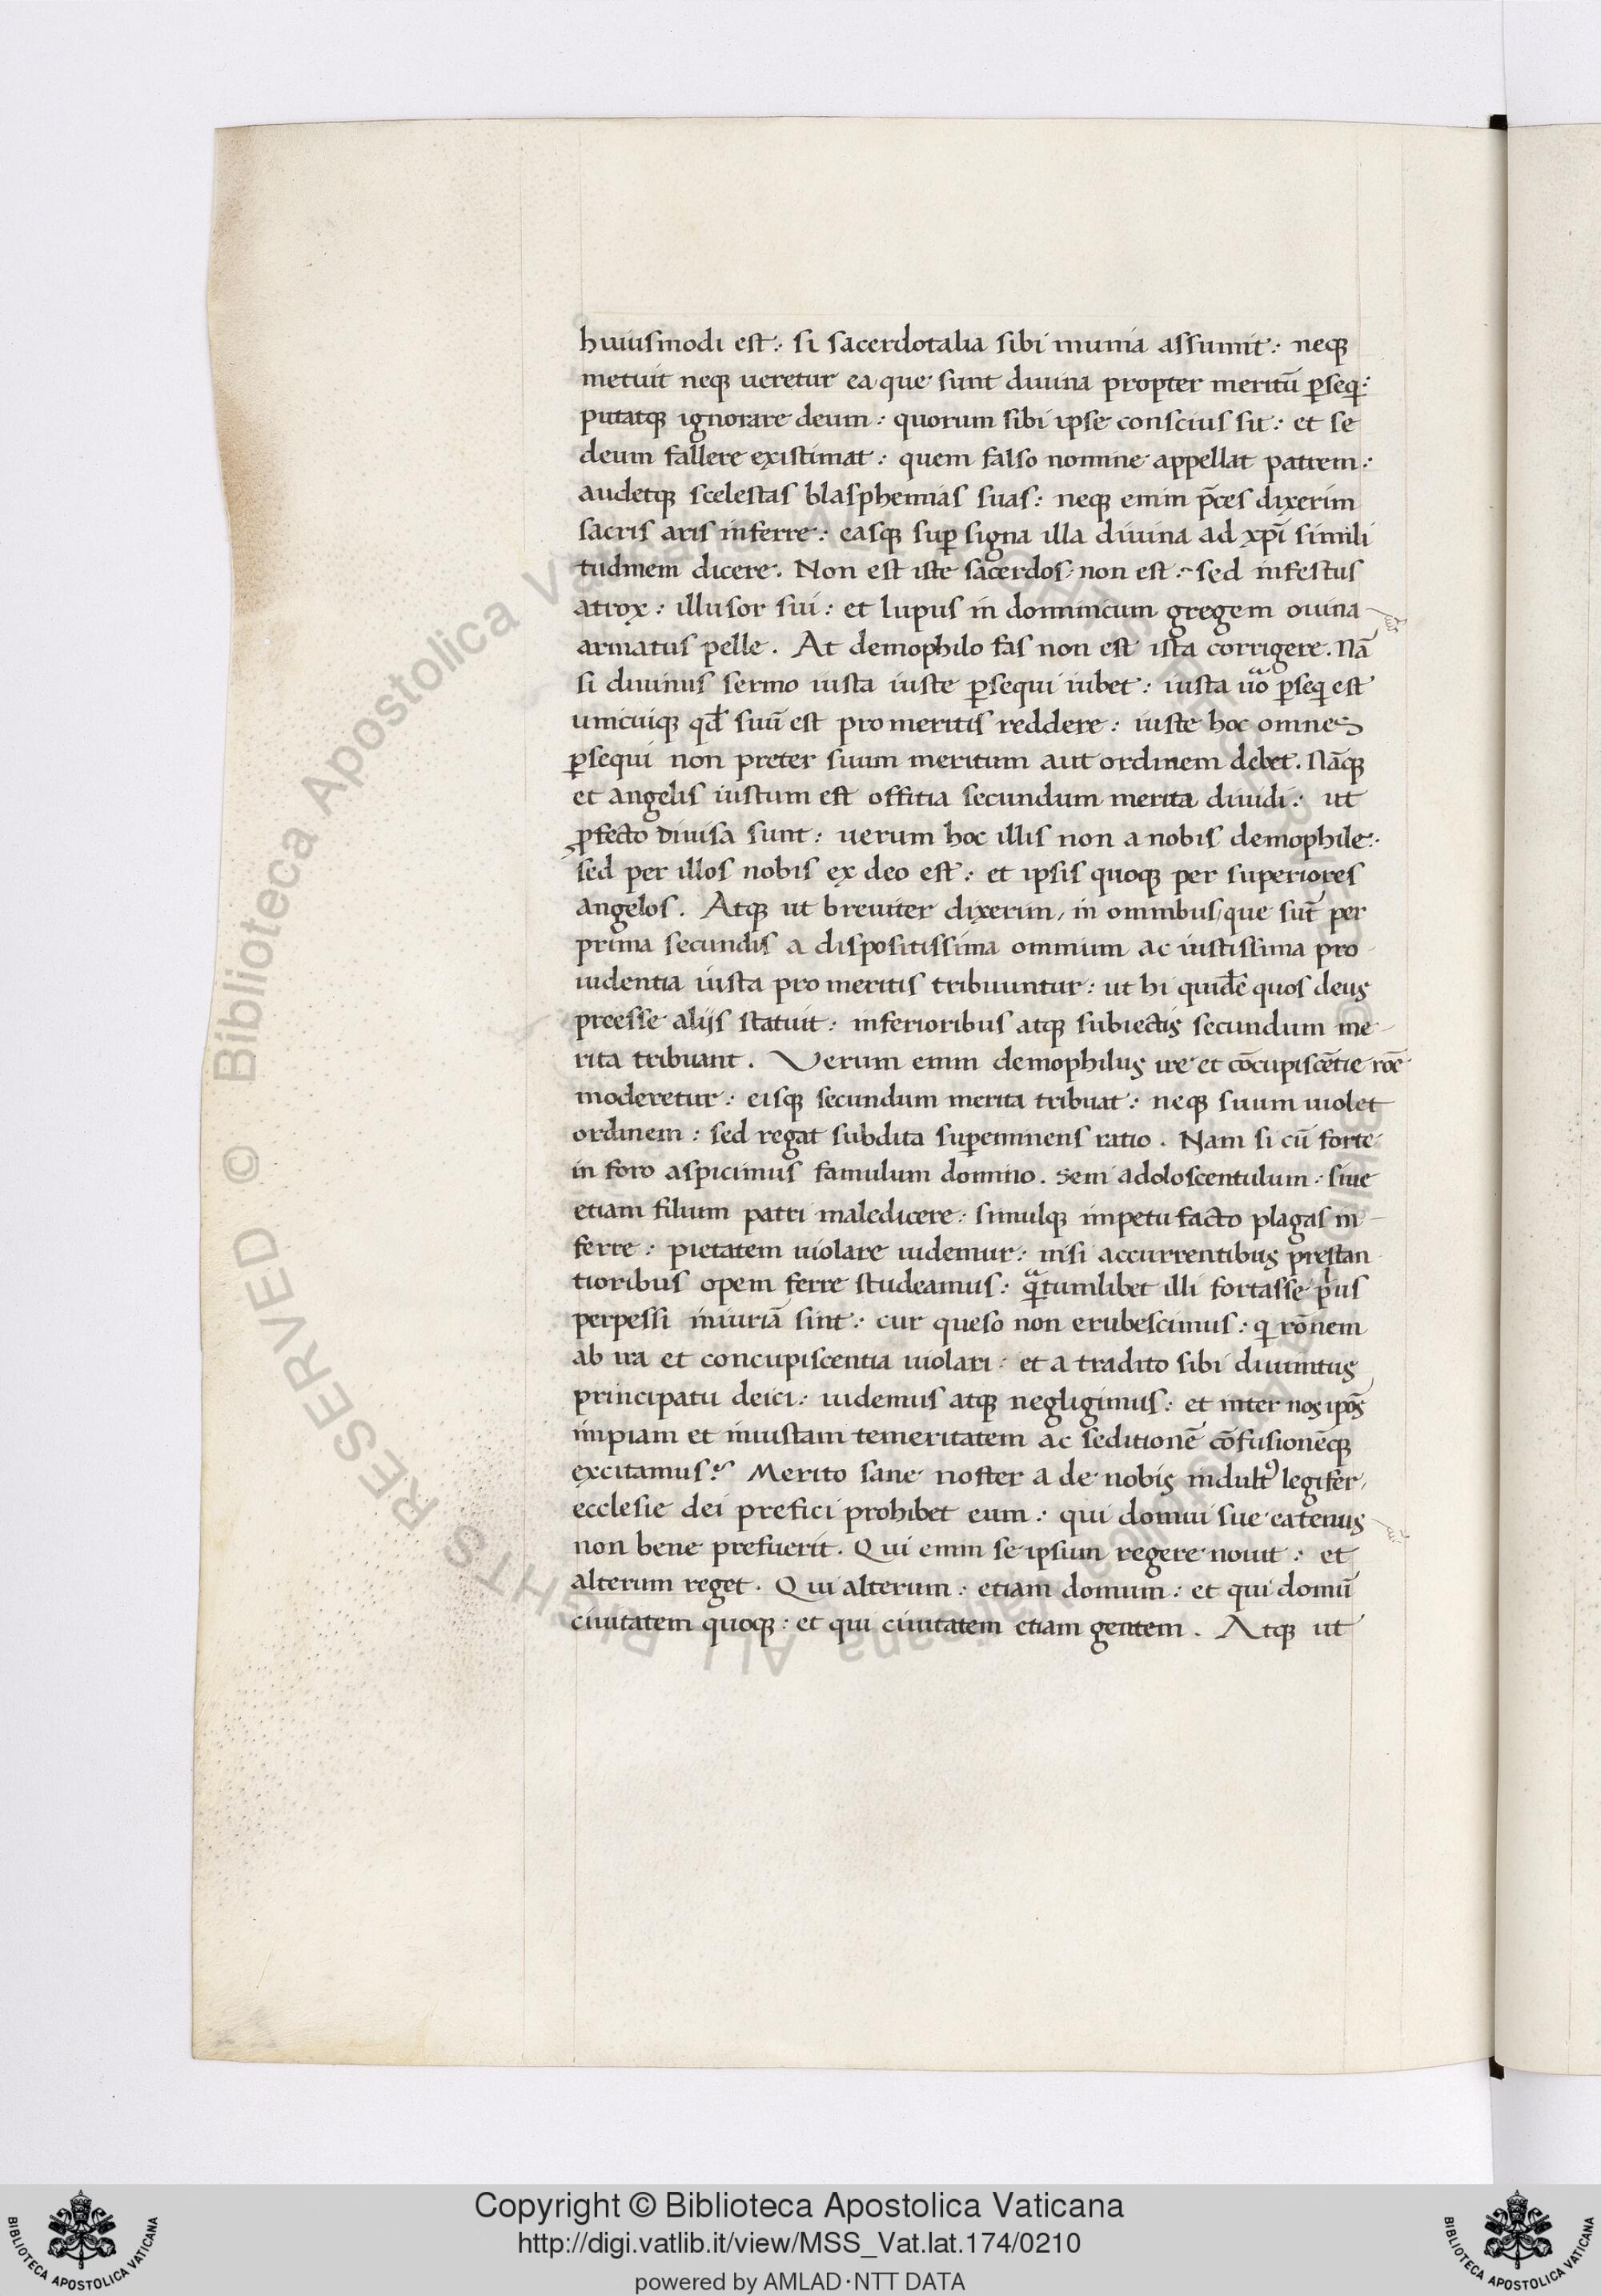 huiusmodi est: si sacerdotalia sibi munia assumit: neqꝫ
metuit neqꝫ ueretur ea que sunt diuina propter meritū ꝑseq:
putatqꝫ ignorare deum: quorum sibi ipse conscius sit: et se
deum fallere existimat: quem falso nomine appellat patrem:
audetqꝫ scelestas blasphemias suas: neqꝫ enim p̄ces dixerim
sacris aris inferre: easqꝫ suꝑ signa illa diuina ad xp̄i simili
tudinem dicere. Non est iste sacerdos non est: sed infestus
atrox: illusor sui: et lupus in dominicum gregem ouina
armatus pelle. At demophilo fas non est ista corrigere. Nā
si diuinus sermo iusta iuste ꝑsequi iubet: iusta uo ꝑseq est
unicuiqꝫ qd suū est pro meritis reddere: iuste hoc omnes
ꝑsequi non preter suum meritum aut ordinem debet. Nāqꝫ
et angelis iustum est offitia secundum merita diuidi: ut
ꝓfecto diuisa sunt: uerum hoc illis non a nobis demophile:
sed per illos nobis ex deo est: et ipsis quoqꝫ per superiores
angelos. Atqꝫ ut breuiter dixerim, in omnibus que sūt per
prima secundis a dispositissima omnium ac iustissima pro
uidentia iusta pro meritis tribuuntur: ut hi quidē quos deus
preesse alijs statuit: inferioribus atqꝫ subiectis secundum me-
rita tribuant. Verum enim demophilus ire et cōcupiscētie rōe
moderetur: eisqꝫ secundum merita tribuat: neqꝫ suum uiolet
ordinem: sed regat subdita suꝑeminens ratio. Nam si cū forte
in foro aspicimus famulum domino. Seni adoloscentulum: siue
etiam filium patri maledicere: simulqꝫ impetu facto plagas in-
ferre: pietatem uiolare uidemur: nisi accurrentibus prestan
tioribus opem ferre studeamus: qātumlibet illi fortasse pius
perpessi iniuriā sint: cur queso non erubescimus: q rōnem
ab ira et concupiscentia uiolari: et a tradito sibi diuinitus
principatu deici: uidemus atqꝫ negligimus: et inter nos ip̄os
impiam et iniustam temeritatem ac seditionē cōfusionēqꝫ
excitamus? Merito sane noster a deo nobis indultꝰ legifer,
ecclesie dei prefici prohibet eum: qui domui sue eatenus
non bene prefuerit. Qui enim se ipsum regere nouit: et
alterum reget. Qui alterum: etiam domum: et qui domū
ciuitatem quoqꝫ: et qui ciuitatem etiam gentem. Atqꝫ ut
© Biblioteca Apostolica Vaticana ALL RIGHTS RESERVED
Copyright © Biblioteca Apostolica Vaticana
http://digi.vatlib.it/view/MSS_Vat.lat.174/0210
powered by AMLAD·NTT DATA
BIBLIOTECA APOSTOLICA VATICANA
BIBLIOTECA APOSTOLICA VATICANA